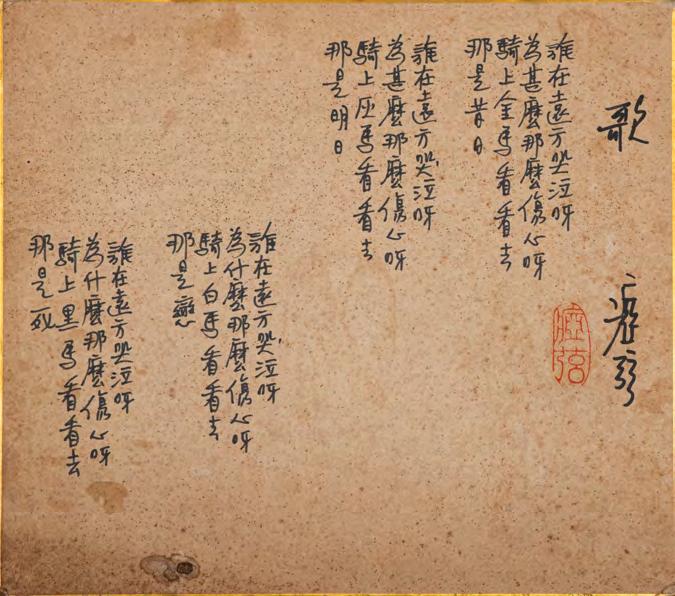 歌
瘂弦
瘂弦
誰在遠方哭泣呀
為甚麼那麼傷心呀
騎上金馬看看去
那是昔日
誰在遠方哭泣呀
為甚麼那麼傷心呀
騎上灰馬看看去
那是明日
誰在遠方哭泣呀
為什麼那麼傷心呀
騎上白馬看看去
那是戀
誰在遠方哭泣呀
為什麼那麼傷心呀
騎上黑馬看看去
那是死